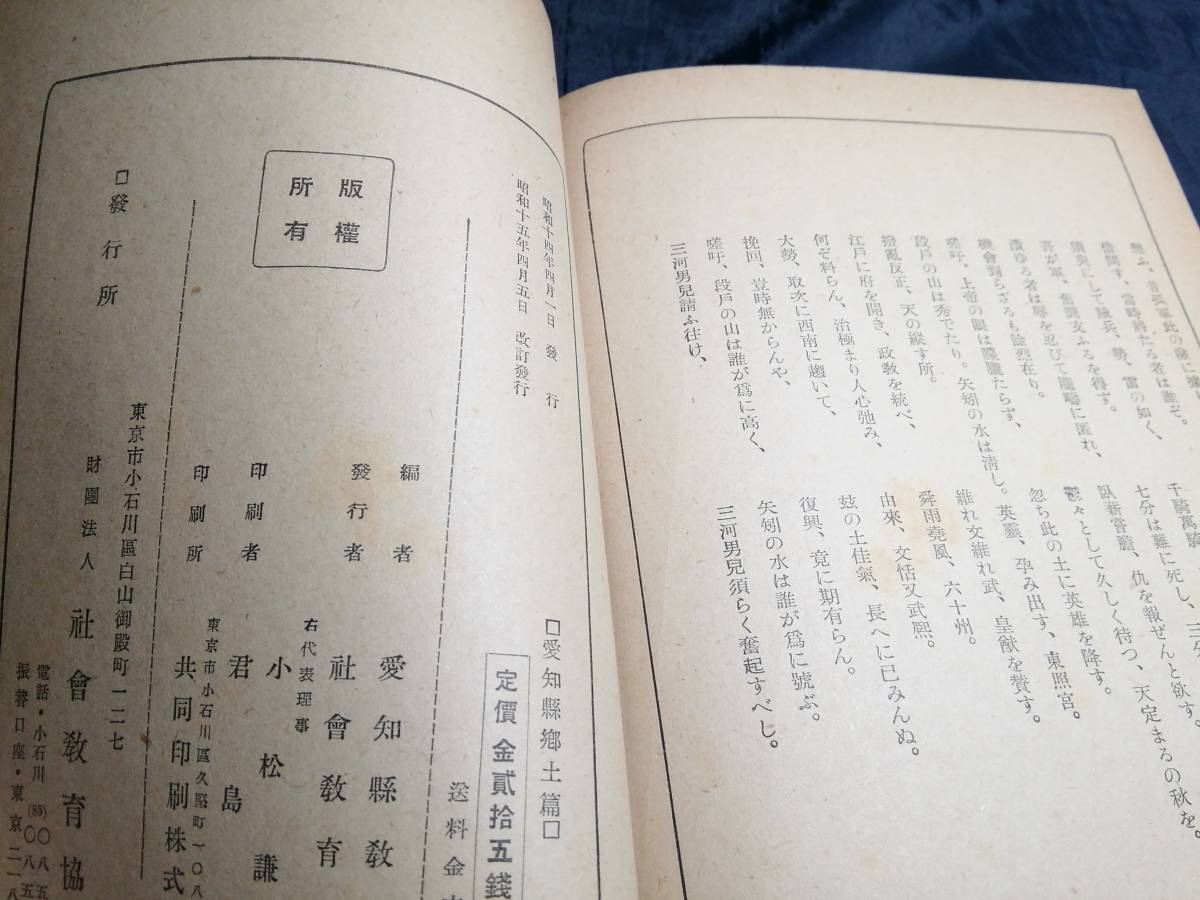 想ふ、昔孤軍此の敵に
借問す、當時將たる者は誰ぞ。
須臾にして賊兵、勢、雷の如く、
吾が軍、奮鬪支ふるを得ず。
潰ゆる者は辱を忍びて隴畴に匿れ、
機會到らざるも餘烈在り。
嗟吁、上帝の眼は朦朧たらず、
段戸の山は秀でたり。矢矧の水は淸し。
撥亂反正、天の縱す所。
江戸に府を開き、政敎を統べ、
何ぞ料らん、治極まり人心弛み、
大勢、取次に西南に趨いて、
挽回、豈時無からんや、
嗟吁、段戸の山は誰が爲に高く、
三河男兒請ふ往け、
千騎萬騎
七分は難に死し、三分
臥薪嘗膽、仇を報ぜんと欲す。
鬱々として久しく待つ、天定まるの秋を。
忽ち此の土に英雄を降す。
英靈、孕み出す、東照宮。
維れ文維れ武、皇猷を賛す。
舜雨堯風、六十州。
由來、文恬又武熙。
玆の土佳氣、長へに已みんぬ。
復興、竟に期有らん。
矢矧の水は誰が爲に號ぶ。
三河男兒須らく奮起すべし。
□愛知縣鄕土篇□
定價金貳拾五錢
送料金
昭和十四年四月一日 發行
昭和十五年四月五日 改訂發行
編者 愛知縣敎
發行者 社會敎育
右代表理事
小松謙
印刷者 君島
東京市小石川區久堅町一〇八
印刷所 共同印刷株式
版權所有
□發行所
東京市小石川區白山御殿町一二七
財團法人 社會敎育協
電話・小石川(85)〇八五
振替口座・東京二一八